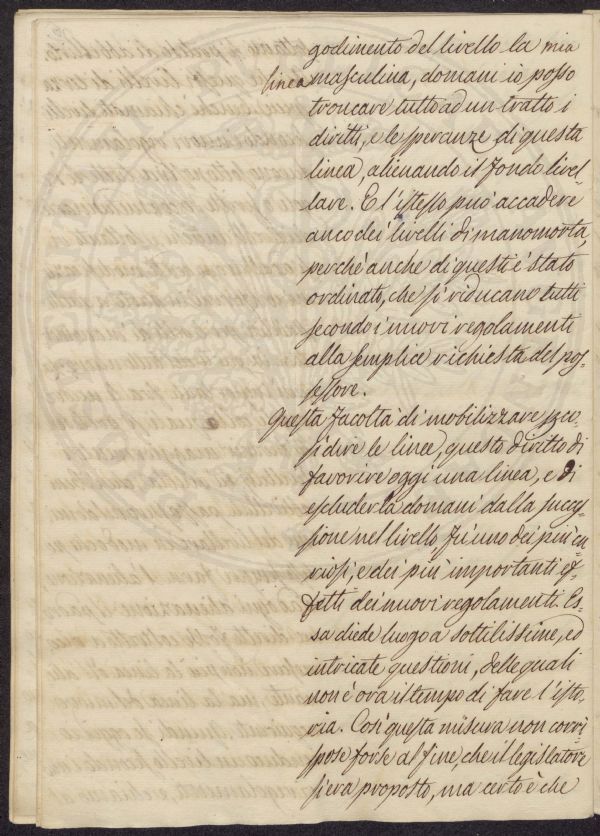 godimento del livello la mia
linea mascolina, domani io posso
troncare tutto ad un tratto i
diritti, e le speranze di questa
linea, alienando il fondo livel-
lare. E l'istesso può accadere
anco dei livelli di manomorta,
perché anche di questi è stato
ordinato, che si riducano tutti
secondo i nuovi regolamenti
alla semplice richiesta del pos-
sessore.
Questa facoltà di mobilizzare p. co-
sì dire le linee, questo diritto di
favorire oggi una linea, e di
escluderla domani dalla succes-
sione nel livello fu uno dei più cu-
riosi, e dei più importanti ef-
fetti dei nuovi regolamenti. Es-
sa diede luogo a sottilissime, ed
intricate questioni, delle quali
non è ora il tempo di fare l'isto-
ria. Così questa misura non corri-
spose forse al fine, che il legislatore
si era proposto, ma certo è che